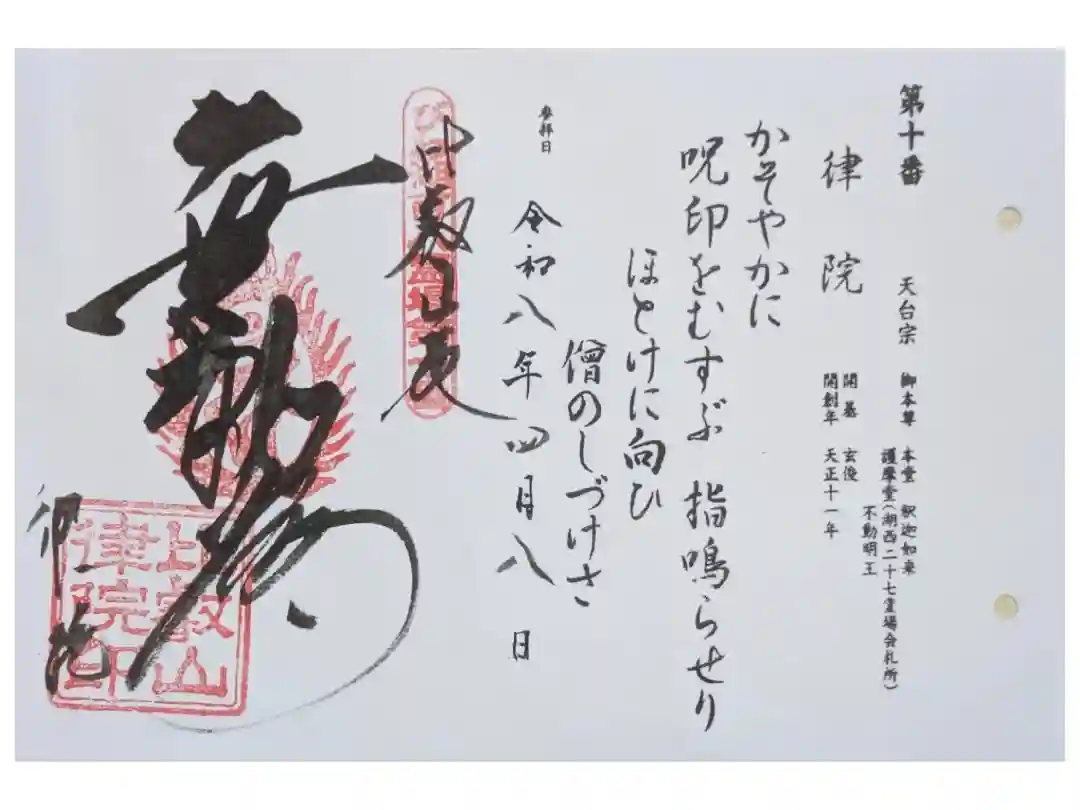 第十番 天台宗 御本尊 本堂 釈迦如来
護摩堂(湖西二十七霊場会札所)
不動明王
律院 開基 玄俊
開創年 天正十一年
かそやかに
呪印をむすぶ 指鳴らせり
ほとけに向ひ
僧のしづけさ
参拝日 令和八年四月八日
律院
比叡山
律院印